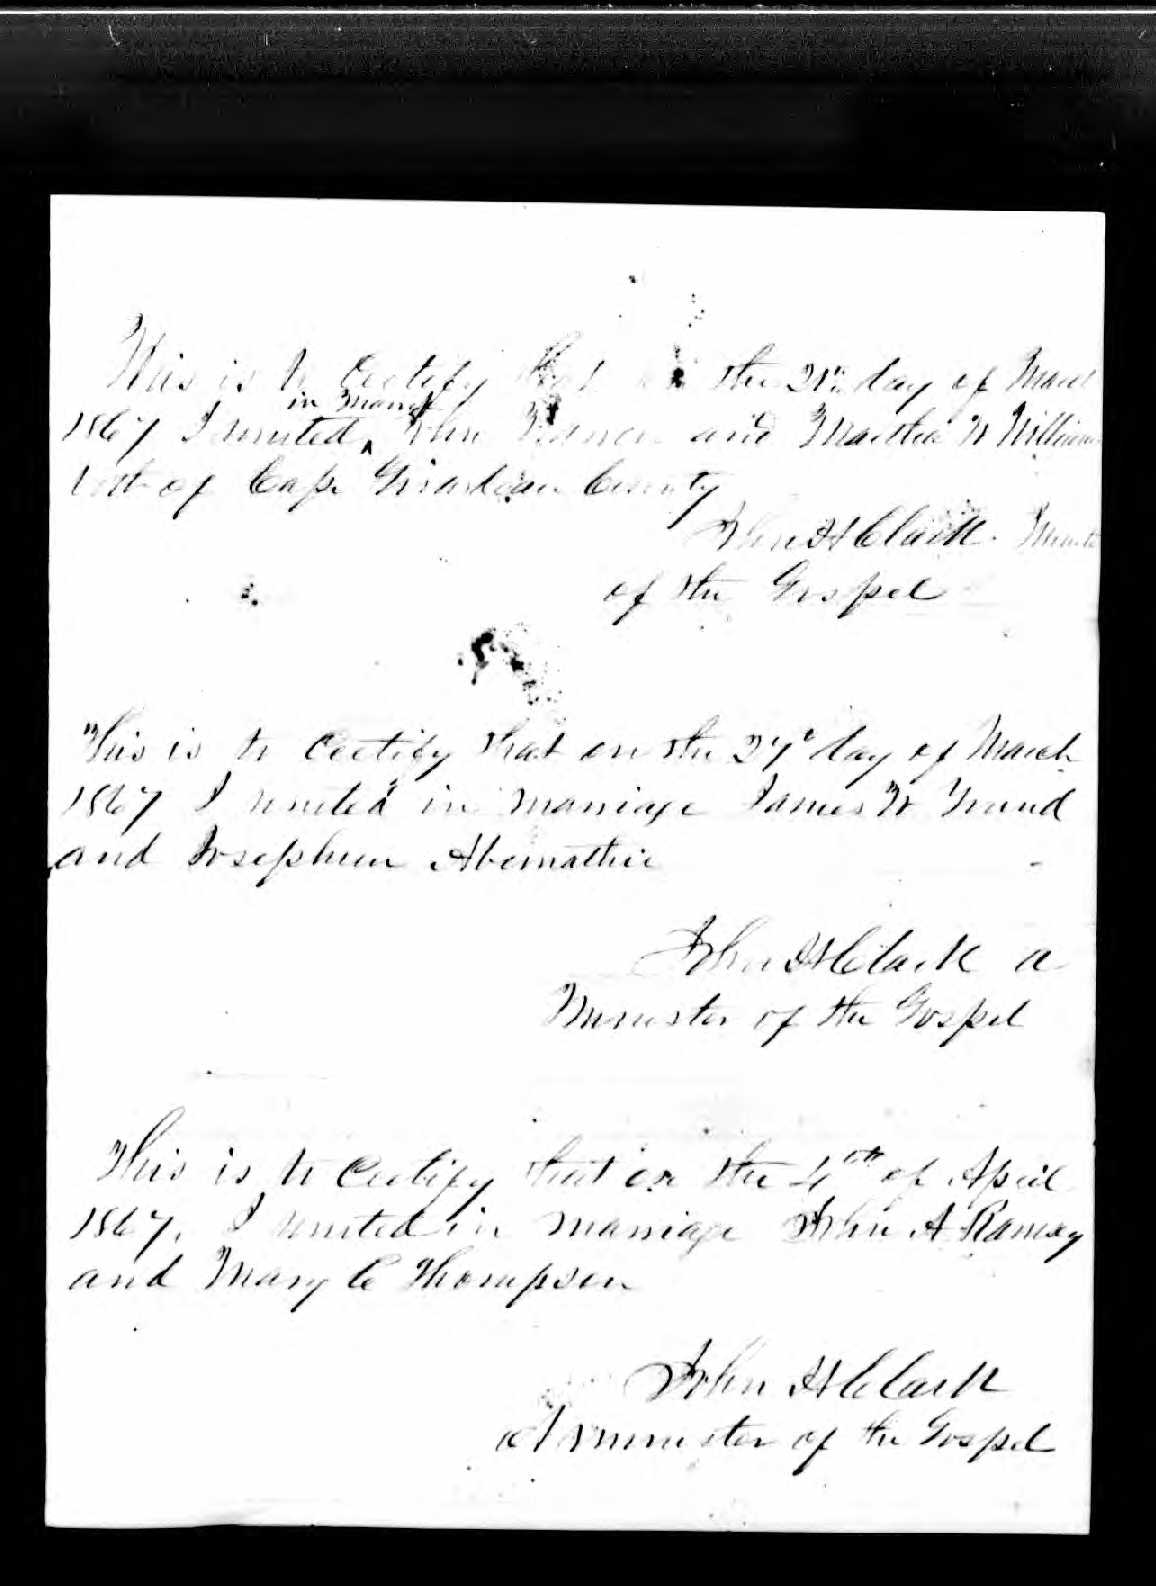 This is to Certify that on the 21st day of March
1867 I united in marriage John and Martha W Williams
both of Cape Girardeau County
John H Clark. Minister
of the Gospel
This is to Certify that on the 27th day of March
1867 I united in marriage James W
and Josephine Abernathie
John H Clark a
Minister of the Gospel
This is to Certify that on the 4th of April
1867. I united in marriage John A Ramsey
and Mary C Thompson
John H Clark
A minister of the Gospel